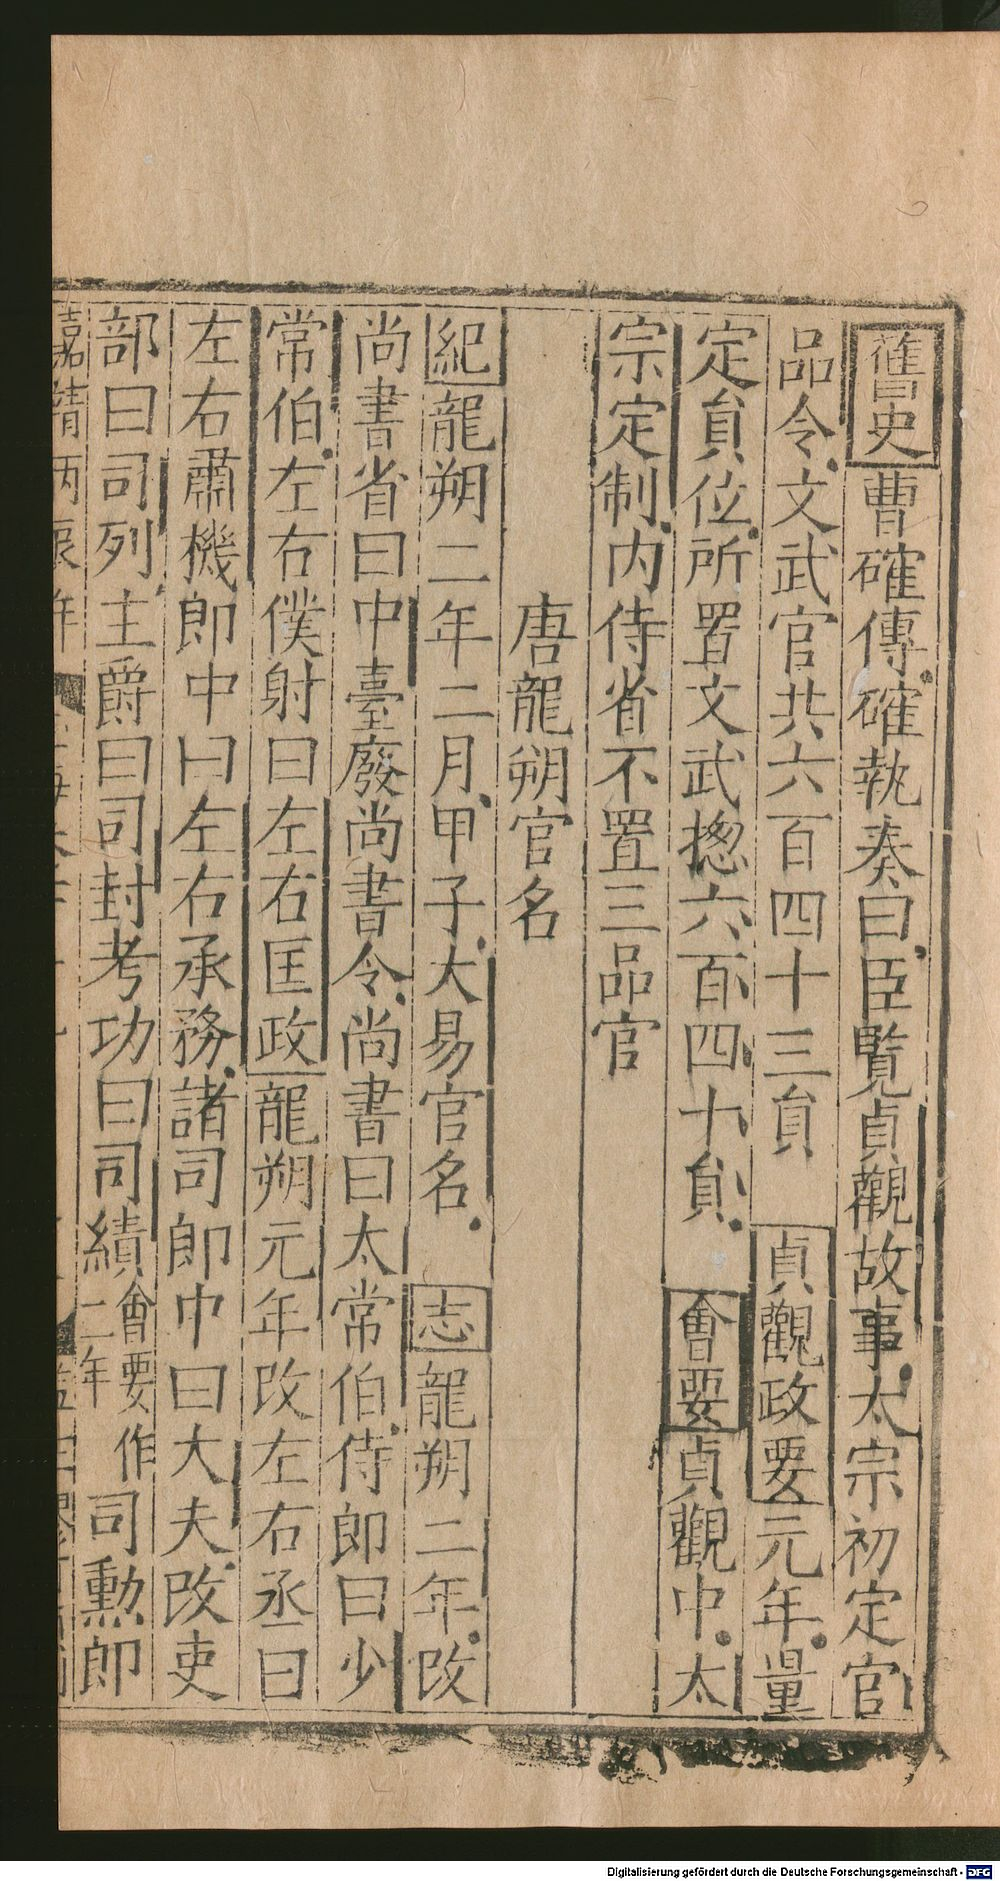 舊史曹確傳確執奏曰臣覽貞觀故事太宗初定官
品令文武官共六百四十三貟 貞觀政要元年量
定貟位所置文武揔六百四十貟 會要貞觀中太
宗定制内侍省不置三品官
唐龍朔官名
紀龍朔二年二月甲子大易官名 志龍朔二年改
尚書省曰中臺廢尚書令尚書曰太常伯侍郎曰少
常伯左右僕射曰左右匡政龍朔元年改左右丞曰
左右肅機郎中曰左右承務諸司郎中曰大夫改吏
部曰司列主爵曰司封考功曰司績會要作二年司勲郎
嘉靖丙辰年
Digitalisierung gefördert durch die Deutsche Forschungsgemeinschaft - DFG